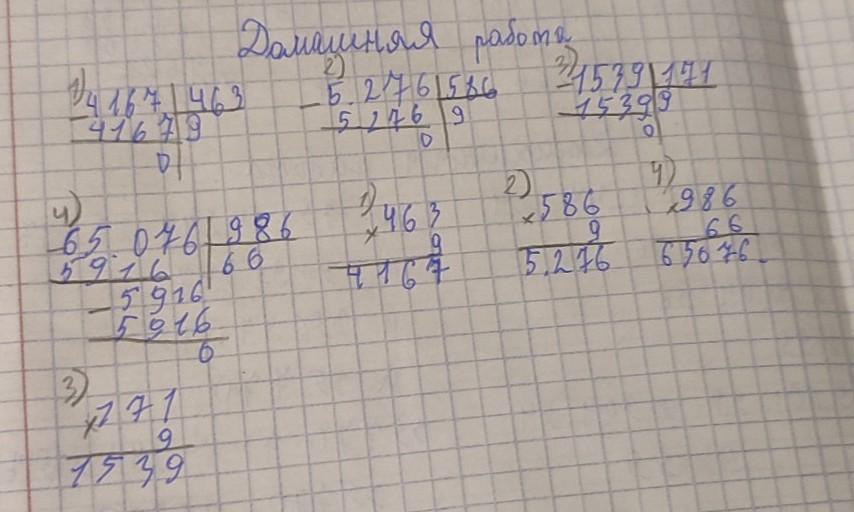 Домашняя работа
1) 4167 | 463
- 4167 | 9
0
2) 5.276 | 586
- 5276 | 9
0
3) 1539 | 171
- 1539 | 9
0
4) 65.076 | 986
- 5916 | 66
- 5916
5916
0
1) × 463
9
4167
2) × 586
9
5.276
4) × 986
66
65076
3) × 171
9
1539